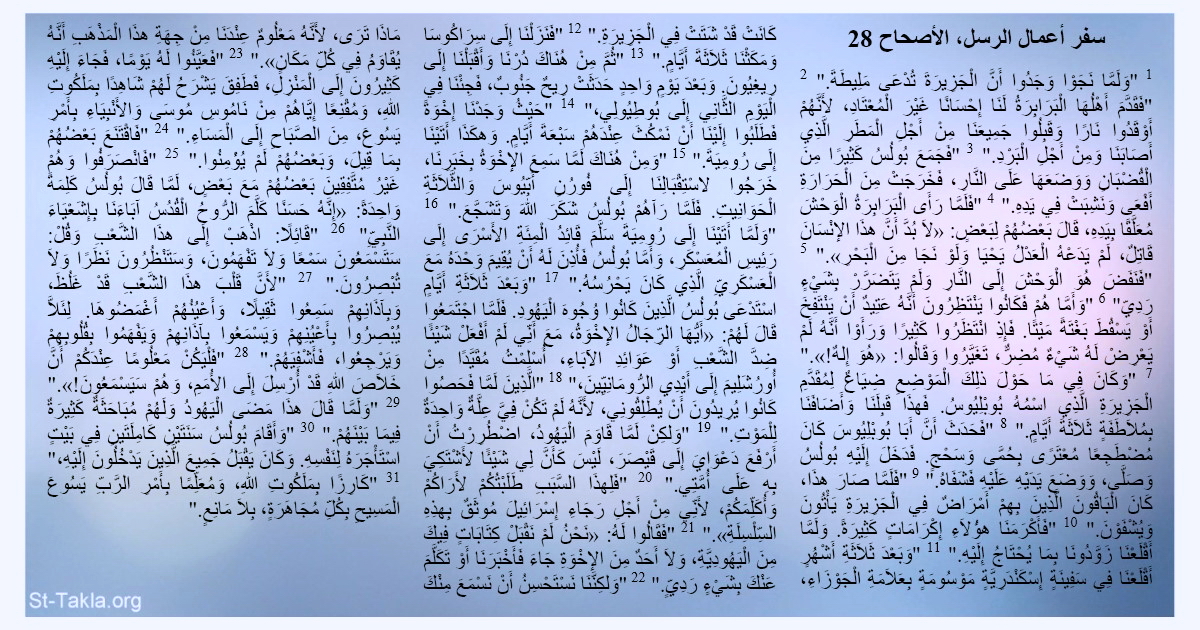 سفر أعمال الرسل، الأصحاح 28
1 "وَلَمَّا نَجَوْا وَجَدُوا أَنَّ الْجَزِيرَةَ تُدْعَى مَلِيطَةَ." 2
"فَقَدَّمَ أَهْلُهَا الْبَرَابِرَةُ لَنَا إِحْسَانًا غَيْرَ الْمُعْتَادِ، لأَنَّهُمْ
أَوْقَدُوا نَارًا وَقَبِلُوا جَمِيعَنَا مِنْ أَجْلِ الْمَطَرِ الَّذِي
أَصَابَنَا وَمِنْ أَجْلِ الْبَرْدِ." 3 "فَجَمَعَ بُولُسُ كَثِيرًا مِنَ
الْقُضْبَانِ وَوَضَعَهَا عَلَى النَّارِ، فَخَرَجَتْ مِنَ الْحَرَارَةِ
أَفْعَى وَنَشِبَتْ فِي يَدِهِ." 4 "فَلَمَّا رَأَى الْبَرَابِرَةُ الْوَحْشَ
مُعَلَّقًا بِيَدِهِ، قَالَ بَعْضُهُمْ لِبَعْضٍ: «لاَ بُدَّ أَنَّ هذَا الإِنْسَانَ
قَاتِلٌ، لَمْ يَدَعْهُ الْعَدْلُ يَحْيَا وَلَوْ نَجَا مِنَ الْبَحْرِ»." 5
"فَنَفَضَ هُوَ الْوَحْشَ إِلَى النَّارِ وَلَمْ يَتَضَرَّرْ بِشَيْءٍ
رَدِيّ" 6 "وَأَمَّا هُمْ فَكَانُوا يَنْتَظِرُونَ أَنَّهُ عَتِيدٌ أَنْ يَنْتَفِخَ
أَوْ يَسْقُطَ بَغْتَةً مَيْتًا. فَإِذِ انْتَظَرُوا كَثِيرًا وَرَأَوْا أَنَّهُ لَمْ
يَعْرِضْ لَهُ شَيْءٌ مُضِرٌّ، تَغَيَّرُوا وَقَالُوا: «هُوَ إِلهٌ!»."
7 "وَكَانَ فِي مَا حَوْلَ ذلِكَ الْمَوْضِعِ ضِيَاعٌ لِمُقَدَّمِ
الْجَزِيرَةِ الَّذِي اسْمُهُ بُوبْلِيُوسُ. فَهذَا قَبِلَنَا وَأَضَافَنَا
بِمُلاَطَفَةٍ ثَلاَثَةَ أَيَّامٍ." 8 "فَحَدَثَ أَنَّ أَبَا بُوبْلِيُوسَ كَانَ
مُضْطَجِعًا مُعْتَرًى بِحُمَّى وَسَحْجٍ. فَدَخَلَ إِلَيْهِ بُولُسُ
وَصَلَّى، وَوَضَعَ يَدَيْهِ عَلَيْهِ فَشَفَاهُ." 9 "فَلَمَّا صَارَ هذَا،
كَانَ الْبَاقُونَ الَّذِينَ بِهِمْ أَمْرَاضٌ فِي الْجَزِيرَةِ يَأْتُونَ
وَيُشْفَوْنَ." 10 "فَأَكْرَمَنَا هؤُلاَءِ إِكْرَامَاتٍ كَثِيرَةً. وَلَمَّا
أَقْلَعْنَا زَوَّدُونَا بِمَا يُحْتَاجُ إِلَيْهِ." 11 "وَبَعْدَ ثَلاَثَةِ أَشْهُرٍ
أَقْلَعْنَا فِي سَفِينَةٍ إِسْكَنْدَرِيَّةٍ مَوْسُومَةٍ بِعَلاَمَةِ الْجَوْزَاءِ،
كَانَتْ قَدْ شَتَتْ فِي الْجَزِيرَةِ." 12 "فَنَزَلْنَا إِلَى سِرَاكُوسَا
وَمَكَثْنَا ثَلاَثَةَ أَيَّامٍ." 13 "ثُمَّ مِنْ هُنَاكَ دُرْنَا وَأَقْبَلْنَا إِلَى
رِيغِيُونَ. وَبَعْدَ يَوْمٍ وَاحِدٍ حَدَثَتْ رِيحٌ جَنُوبٌ، فَجِئْنَا فِي
الْيَوْمِ الثَّانِي إِلَى بُوطِيُولِي،" 14 "حَيْثُ وَجَدْنَا إِخْوَةً
فَطَلَبُوا إِلَيْنَا أَنْ نَمْكُثَ عِنْدَهُمْ سَبْعَةَ أَيَّامٍ. وَهكَذَا أَتَيْنَا
إِلَى رُومِيَةَ." 15 "وَمِنْ هُنَاكَ لَمَّا سَمِعَ الإِخْوَةُ بِخَبَرِنَا،
خَرَجُوا لاسْتِقْبَالِنَا إِلَى فُورُنِ أَبِّيُوسَ وَالثَّلاَثَةِ
الْحَوَانِيتِ. فَلَمَّا رَآهُمْ بُولُسُ شَكَرَ اللهَ وَتَشَجَّعَ." 16
"وَلَمَّا أَتَيْنَا إِلَى رُومِيَةَ سَلَّمَ قَائِدُ الْمِئَةِ الأَسْرَى إِلَى
رَئِيسِ الْمُعَسْكَرِ، وَأَمَّا بُولُسُ فَأُذِنَ لَهُ أَنْ يُقِيمَ وَحْدَهُ مَعَ
الْعَسْكَرِيِّ الَّذِي كَانَ يَحْرُسُهُ." 17 "وَبَعْدَ ثَلاَثَةِ أَيَّامٍ
اسْتَدْعَى بُولُسُ الَّذِينَ كَانُوا وُجُوهَ الْيَهُودِ. فَلَمَّا اجْتَمَعُوا
قَالَ لَهُمْ: «أَيُّهَا الرِّجَالُ الإِخْوَةُ، مَعَ أَنِّي لَمْ أَفْعَلْ شَيْئًا
ضِدَّ الشَّعْبِ أَوْ عَوَائِدِ الآبَاءِ، أُسْلِمْتُ مُقَيَّدًا مِنْ
أُورُشَلِيمَ إِلَى أَيْدِي الرُّومَانِيِّينَ،" 18 "الَّذِينَ لَمَّا فَحَصُوا
كَانُوا يُرِيدُونَ أَنْ يُطْلِقُونِي، لأَنَّهُ لَمْ تَكُنْ فِيَّ عِلَّةٌ وَاحِدَةٌ
لِلْمَوْتِ." 19 "وَلكِنْ لَمَّا قَاوَمَ الْيَهُودُ، اضْطُرِرْتُ أَنْ
أَرْفَعَ دَعْوَايَ إِلَى قَيْصَرَ، لَيْسَ كَأَنَّ لِي شَيْئًا لأَشْتَكِيَ
بِهِ عَلَى أُمَّتِي." 20 "فَلِهذَا السَّبَبِ طَلَبْتُكُمْ لأَرَاكُمْ
وَأُكَلِّمَكُمْ، لأَنِّي مِنْ أَجْلِ رَجَاءِ إِسْرَائِيلَ مُوثَقٌ بِهذِهِ
السِّلْسِلَةِ»." 21 "فَقَالُوا لَهُ: «نَحْنُ لَمْ نَقْبَلْ كِتَابَاتٍ فِيكَ
مِنَ الْيَهُودِيَّةِ، وَلاَ أَحَدٌ مِنَ الإِخْوَةِ جَاءَ فَأَخْبَرَنَا أَوْ تَكَلَّمَ
عَنْكَ بِشَيْءٍ رَدِيٍّ." 22 "وَلكِنَّنَا نَسْتَحْسِنُ أَنْ نَسْمَعَ مِنْكَ
مَاذَا تَرَى، لأَنَّهُ مَعْلُومٌ عِنْدَنَا مِنْ جِهَةِ هذَا الْمَذْهَبِ أَنَّهُ
يُقَاوَمُ فِي كُلِّ مَكَانٍ»." 23 "فَعَيَّنُوا لَهُ يَوْمًا، فَجَاءَ إِلَيْهِ
كَثِيرُونَ إِلَى الْمَنْزِلِ، فَطَفِقَ يَشْرَحُ لَهُمْ شَاهِدًا بِمَلَكُوتِ
اللهِ، وَمُقْنِعًا إِيَّاهُمْ مِنْ نَامُوسِ مُوسَى وَالأَنْبِيَاءِ بِأَمْرِ
يَسُوعَ، مِنَ الصَّبَاحِ إِلَى الْمَسَاءِ." 24 "فَاقْتَنَعَ بَعْضُهُمْ
بِمَا قِيلَ، وَبَعْضُهُمْ لَمْ يُؤْمِنُوا." 25 "فَانْصَرَفُوا وَهُمْ
غَيْرُ مُتَّفِقِينَ بَعْضُهُمْ مَعَ بَعْضٍ، لَمَّا قَالَ بُولُسُ كَلِمَةً
وَاحِدَةً: «إِنَّهُ حَسَنًا كَلَّمَ الرُّوحُ الْقُدُسُ آبَاءَنَا بِإِشَعْيَاءَ
النَّبِيِّ" 26 "قَائِلاً: اذْهَبْ إِلَى هذَا الشَّعْبِ وَقُلْ:
سَتَسْمَعُونَ سَمْعًا وَلاَ تَفْهَمُونَ، وَسَتَنْظُرُونَ نَظَرًا وَلاَ
تُبْصِرُونَ." 27 "لأَنَّ قَلْبَ هذَا الشَّعْبِ قَدْ غَلُظَ،
وَبِآذَانِهِمْ سَمِعُوا ثَقِيلاً، وَأَعْيُنُهُمْ أَغْمَضُوهَا. لِئَلاَّ
يُبْصِرُوا بِأَعْيُنِهِمْ وَيَسْمَعُوا بِآذَانِهِمْ وَيَفْهَمُوا بِقُلُوبِهِمْ
وَيَرْجِعُوا، فَأَشْفِيَهُمْ." 28 "فَلْيَكُنْ مَعْلُومًا عِنْدَكُمْ أَنَّ
خَلاَصَ اللهِ قَدْ أُرْسِلَ إِلَى الأُمَمِ، وَهُمْ سَيَسْمَعُونَ!»."
29 "وَلَمَّا قَالَ هذَا مَضَى الْيَهُودُ وَلَهُمْ مُبَاحَثَةٌ كَثِيرَةٌ
فِيمَا بَيْنَهُمْ." 30 "وَأَقَامَ بُولُسُ سَنَتَيْنِ كَامِلَتَيْنِ فِي بَيْتٍ
اسْتَأْجَرَهُ لِنَفْسِهِ. وَكَانَ يَقْبَلُ جَمِيعَ الَّذِينَ يَدْخُلُونَ إِلَيْهِ،"
31 "كَارِزًا بِمَلَكُوتِ اللهِ، وَمُعَلِّمًا بِأَمْرِ الرَّبِّ يَسُوعَ
الْمَسِيحِ بِكُلِّ مُجَاهَرَةٍ، بِلاَ مَانِعٍ."
St-Takla.org